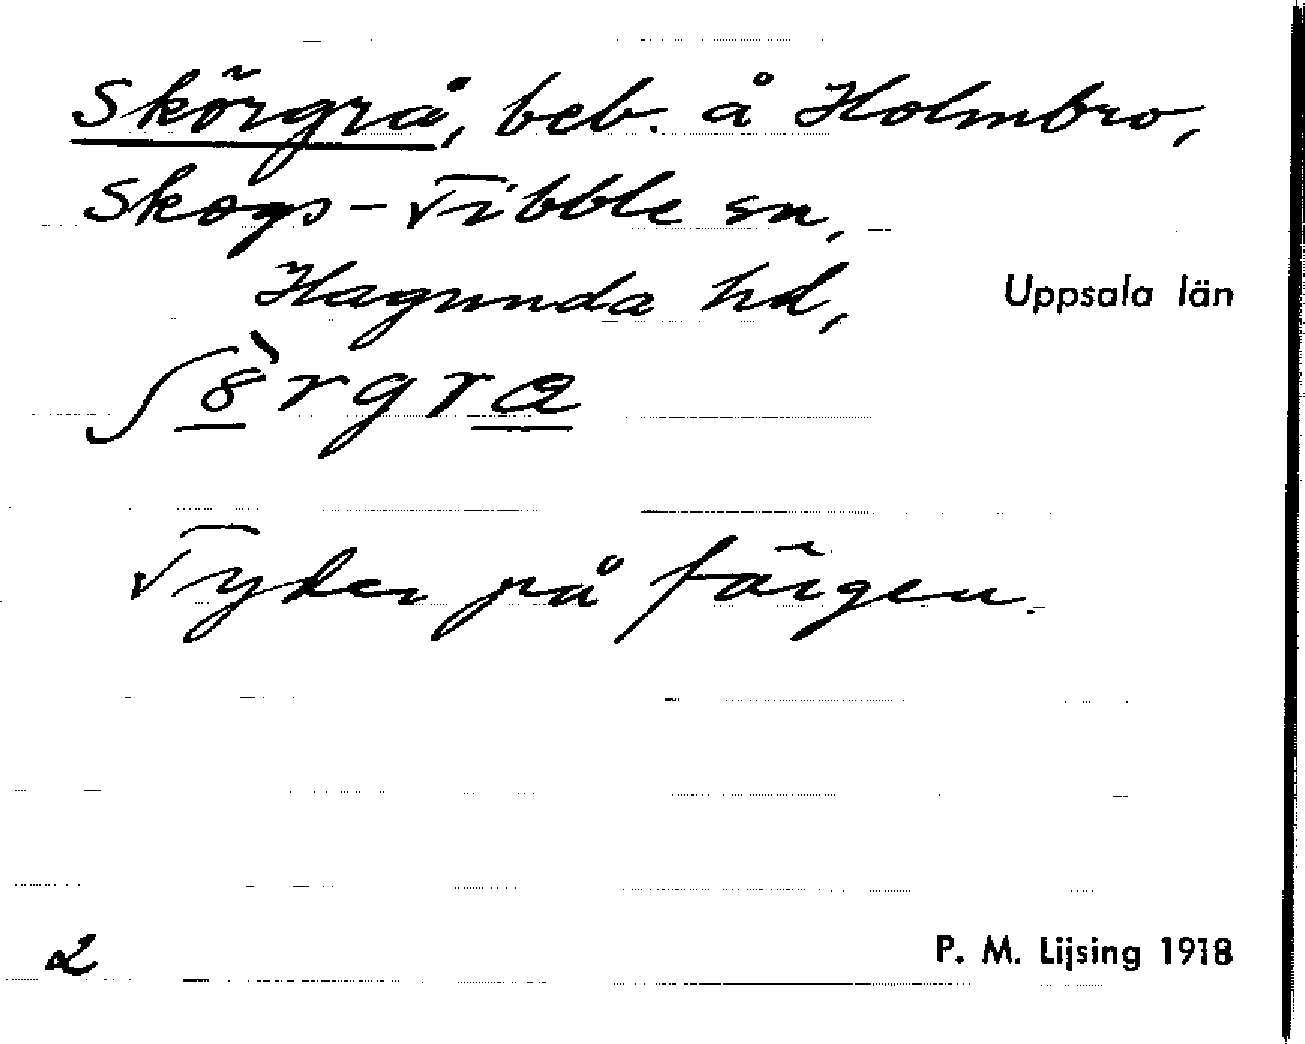 Skörgrå, beb. å Holmbro,
Skogs-Tibble sn,
Hagunda hd,
Uppsala län
ʃ8̀rgrɑ
Tyder på färgen.
2
P. M. Lijsing 1918